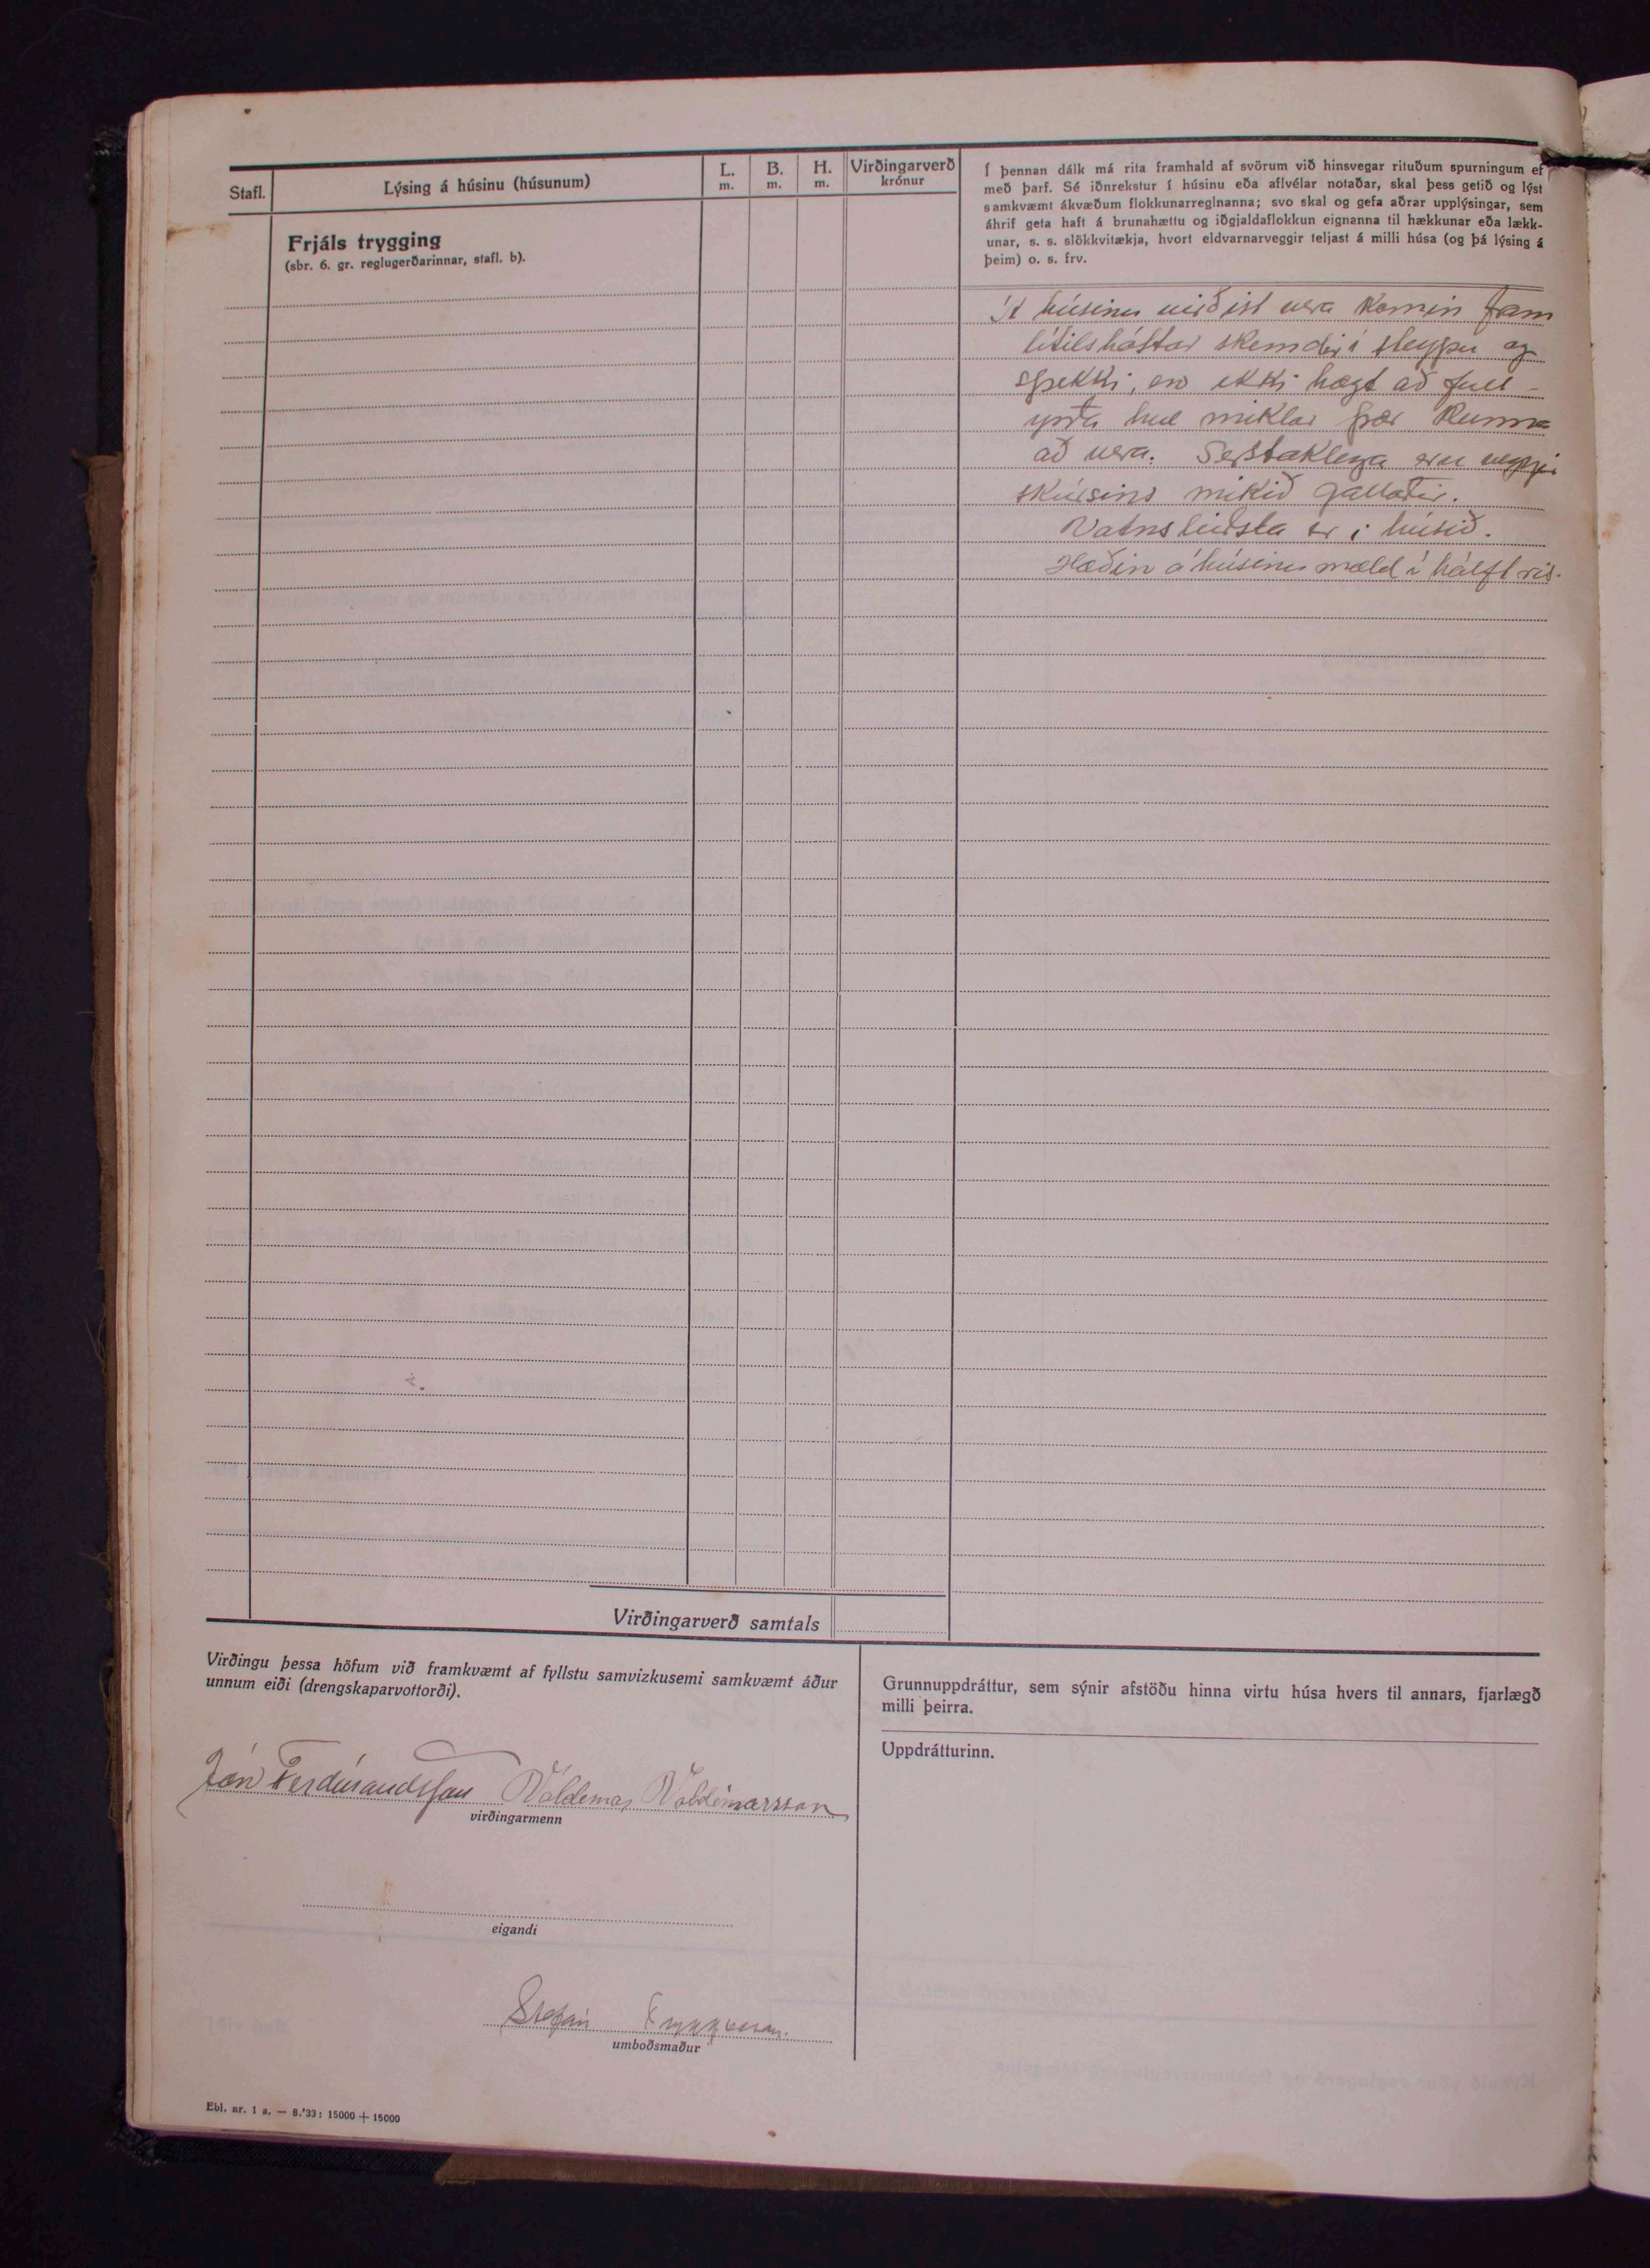 Stafl.
Lýsing á húsinu (húsunum)
L.
m.
B.
m.
H.
m.
Virðingarverð
krónur
Frjáls trygging
(sbr. 6. gr. reglugerðarinnar, stafl. b).
Í þennan dálk má rita framhald af svörum við hinsvegar rituðum spurningum ef
með þarf. Sé iðnrekstur í húsinu eða aflvélar notaðar, skal þess getið og lýst
samkvæmt ákvæðum flokkunarreglnanna; svo skal og gefa aðrar upplýsingar, sem
áhrif geta haft á brunahættu og iðgjaldaflokkun eignanna til hækkunar eða lækk-
unar, s. s. slökkvitækja, hvort eldvarnarveggir teljast á milli húsa (og þá lýsing á
þeim) o. s. frv.
Á húsinu virðist vera komin fram
lítilsháttar skemdir í steypu og
þekki, en ekki hægt að full-
yrða hve miklar þær kunna
að vera. Serstaklega eru veggir
skúrsins mikið gallaðir.
Vatnsleiðsla er í húsið.
Hæðin á húsinu mæld í hálft ris.
Virðingarverð samtals
Virðingu þessa höfum við framkvæmt af fyllstu samvizkusemi samkvæmt áður
unnum eiði (drengskaparvottorði).
Jón Ferdínandsson Valdemar Valdimarsson
virðingarmenn
eigandi
Stefán
umboðsmaður
Grunnuppdráttur, sem sýnir afstöðu hinna virtu húsa hvers til annars, fjarlægð
milli þeirra.
Uppdrátturinn.
Ebl. nr. 1 a. — 8.'33: 15000 + 15000